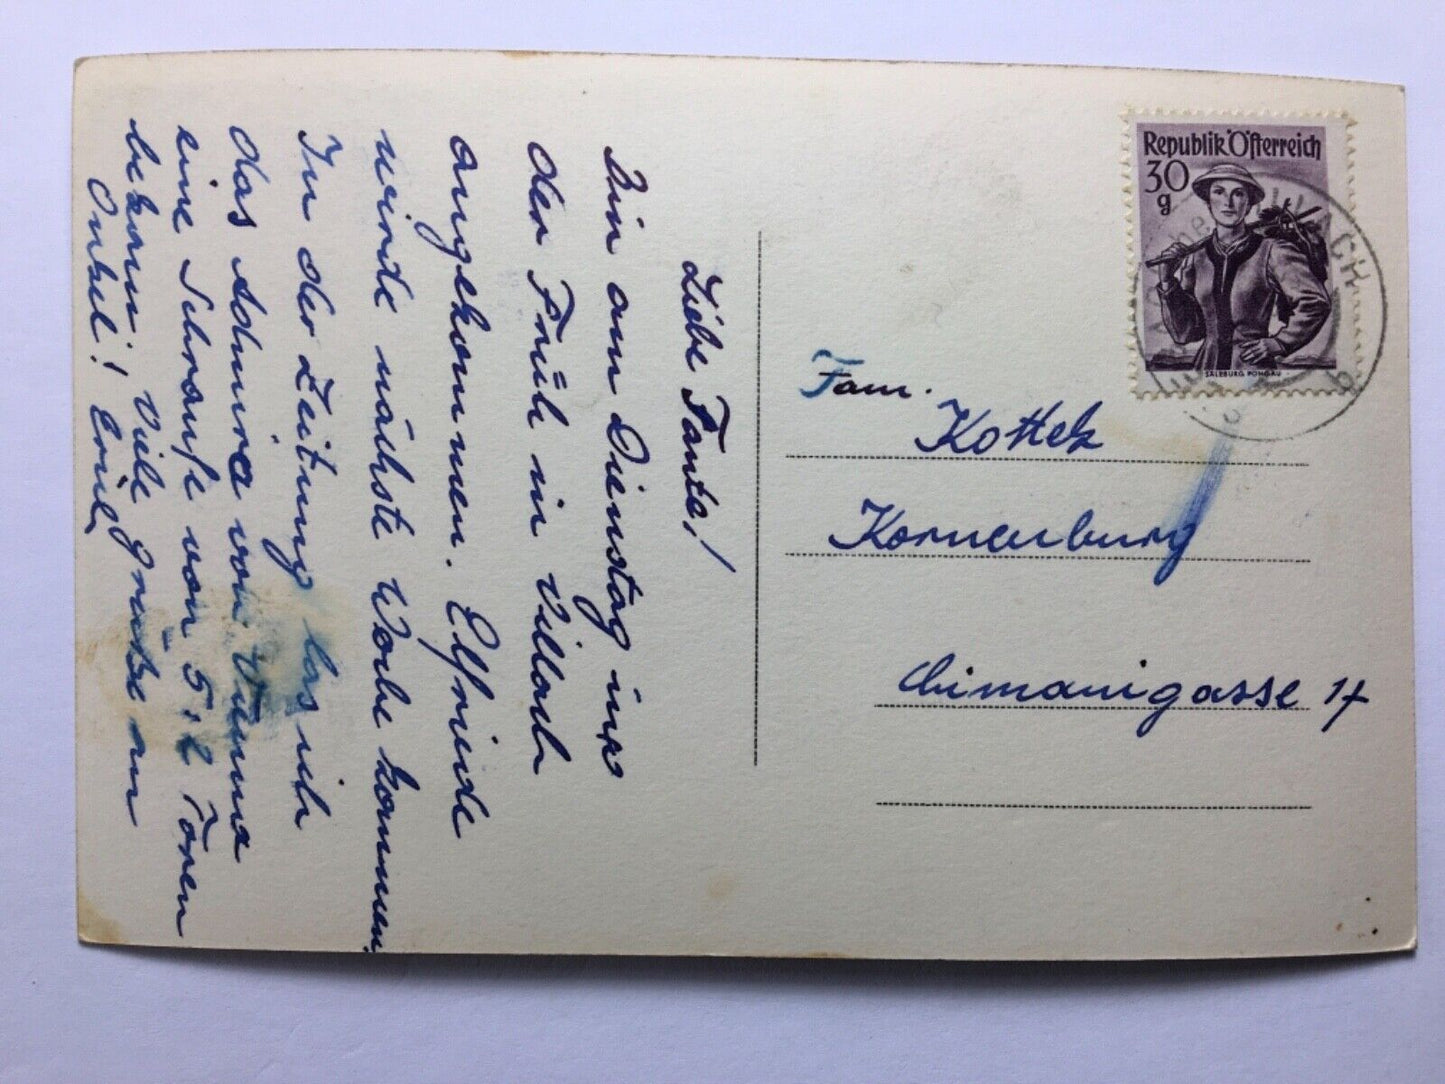 Liebe Tante!
Bin am Dienstag
der Früh in Villach
angekommen. Elfriede
wird nächste Woche kommen.
In der Zeitung las ich
das Admira von Vienna
eine Schrauffe von 5:2 Toren
bekam. Viele Grüße an
Onkel! Erich
Republik Österreich
30
g
SALZBURG PONGAU
Fam.
Kottek
Korneuburg
Chimanigasse 14